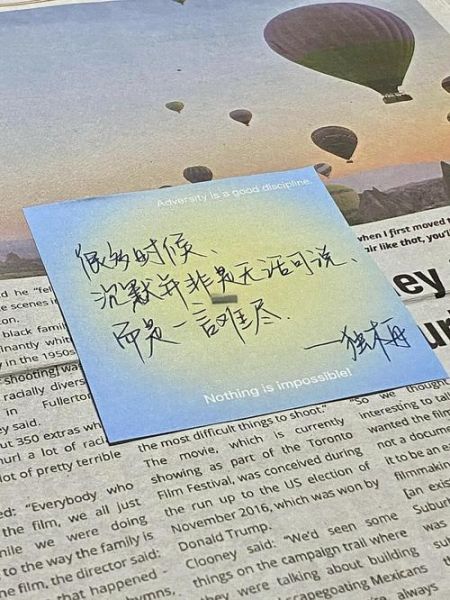 when I first moved
air like that, you'll
Adversity is a good discipline.
很多时候、
沉默并非是无话可说、
而是一言难尽.
一独木舟
Nothing is impossible!
ney
ur
d he "fe
e scenes i
on.
black family
inantly whit
y in the 1950s
shooting] was
racially divers
in Fullerto
ey said.
ut 350 extras wh
hurl a lot of raci
lot of pretty terrible
ed: "Everybody who
the film, we all just
while we were doing
to the way the family is
he film, the director said:
that happened
hymns,
the most difficult things to shoot."
The movie, which is currently
showing as part of the Toronto
Film Festival, was conceived during
the run up to the US election of
November 2016, which was won by
Donald Trump.
Clooney said: "We'd seen some
things on the campaign trail where
they were talking about building
scapegoating Mexicans
"So we thought
interesting to tal
wanted the film
not a docume
it to be an ex
filmmaking
[an exis
Suburb
was
sub
always